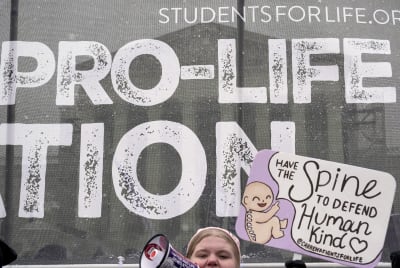 STUDENTSFORLIFE.OR
PRO-LIFE
ATION
HAVE
THE Spine
TO DEFEND
Human
Kind